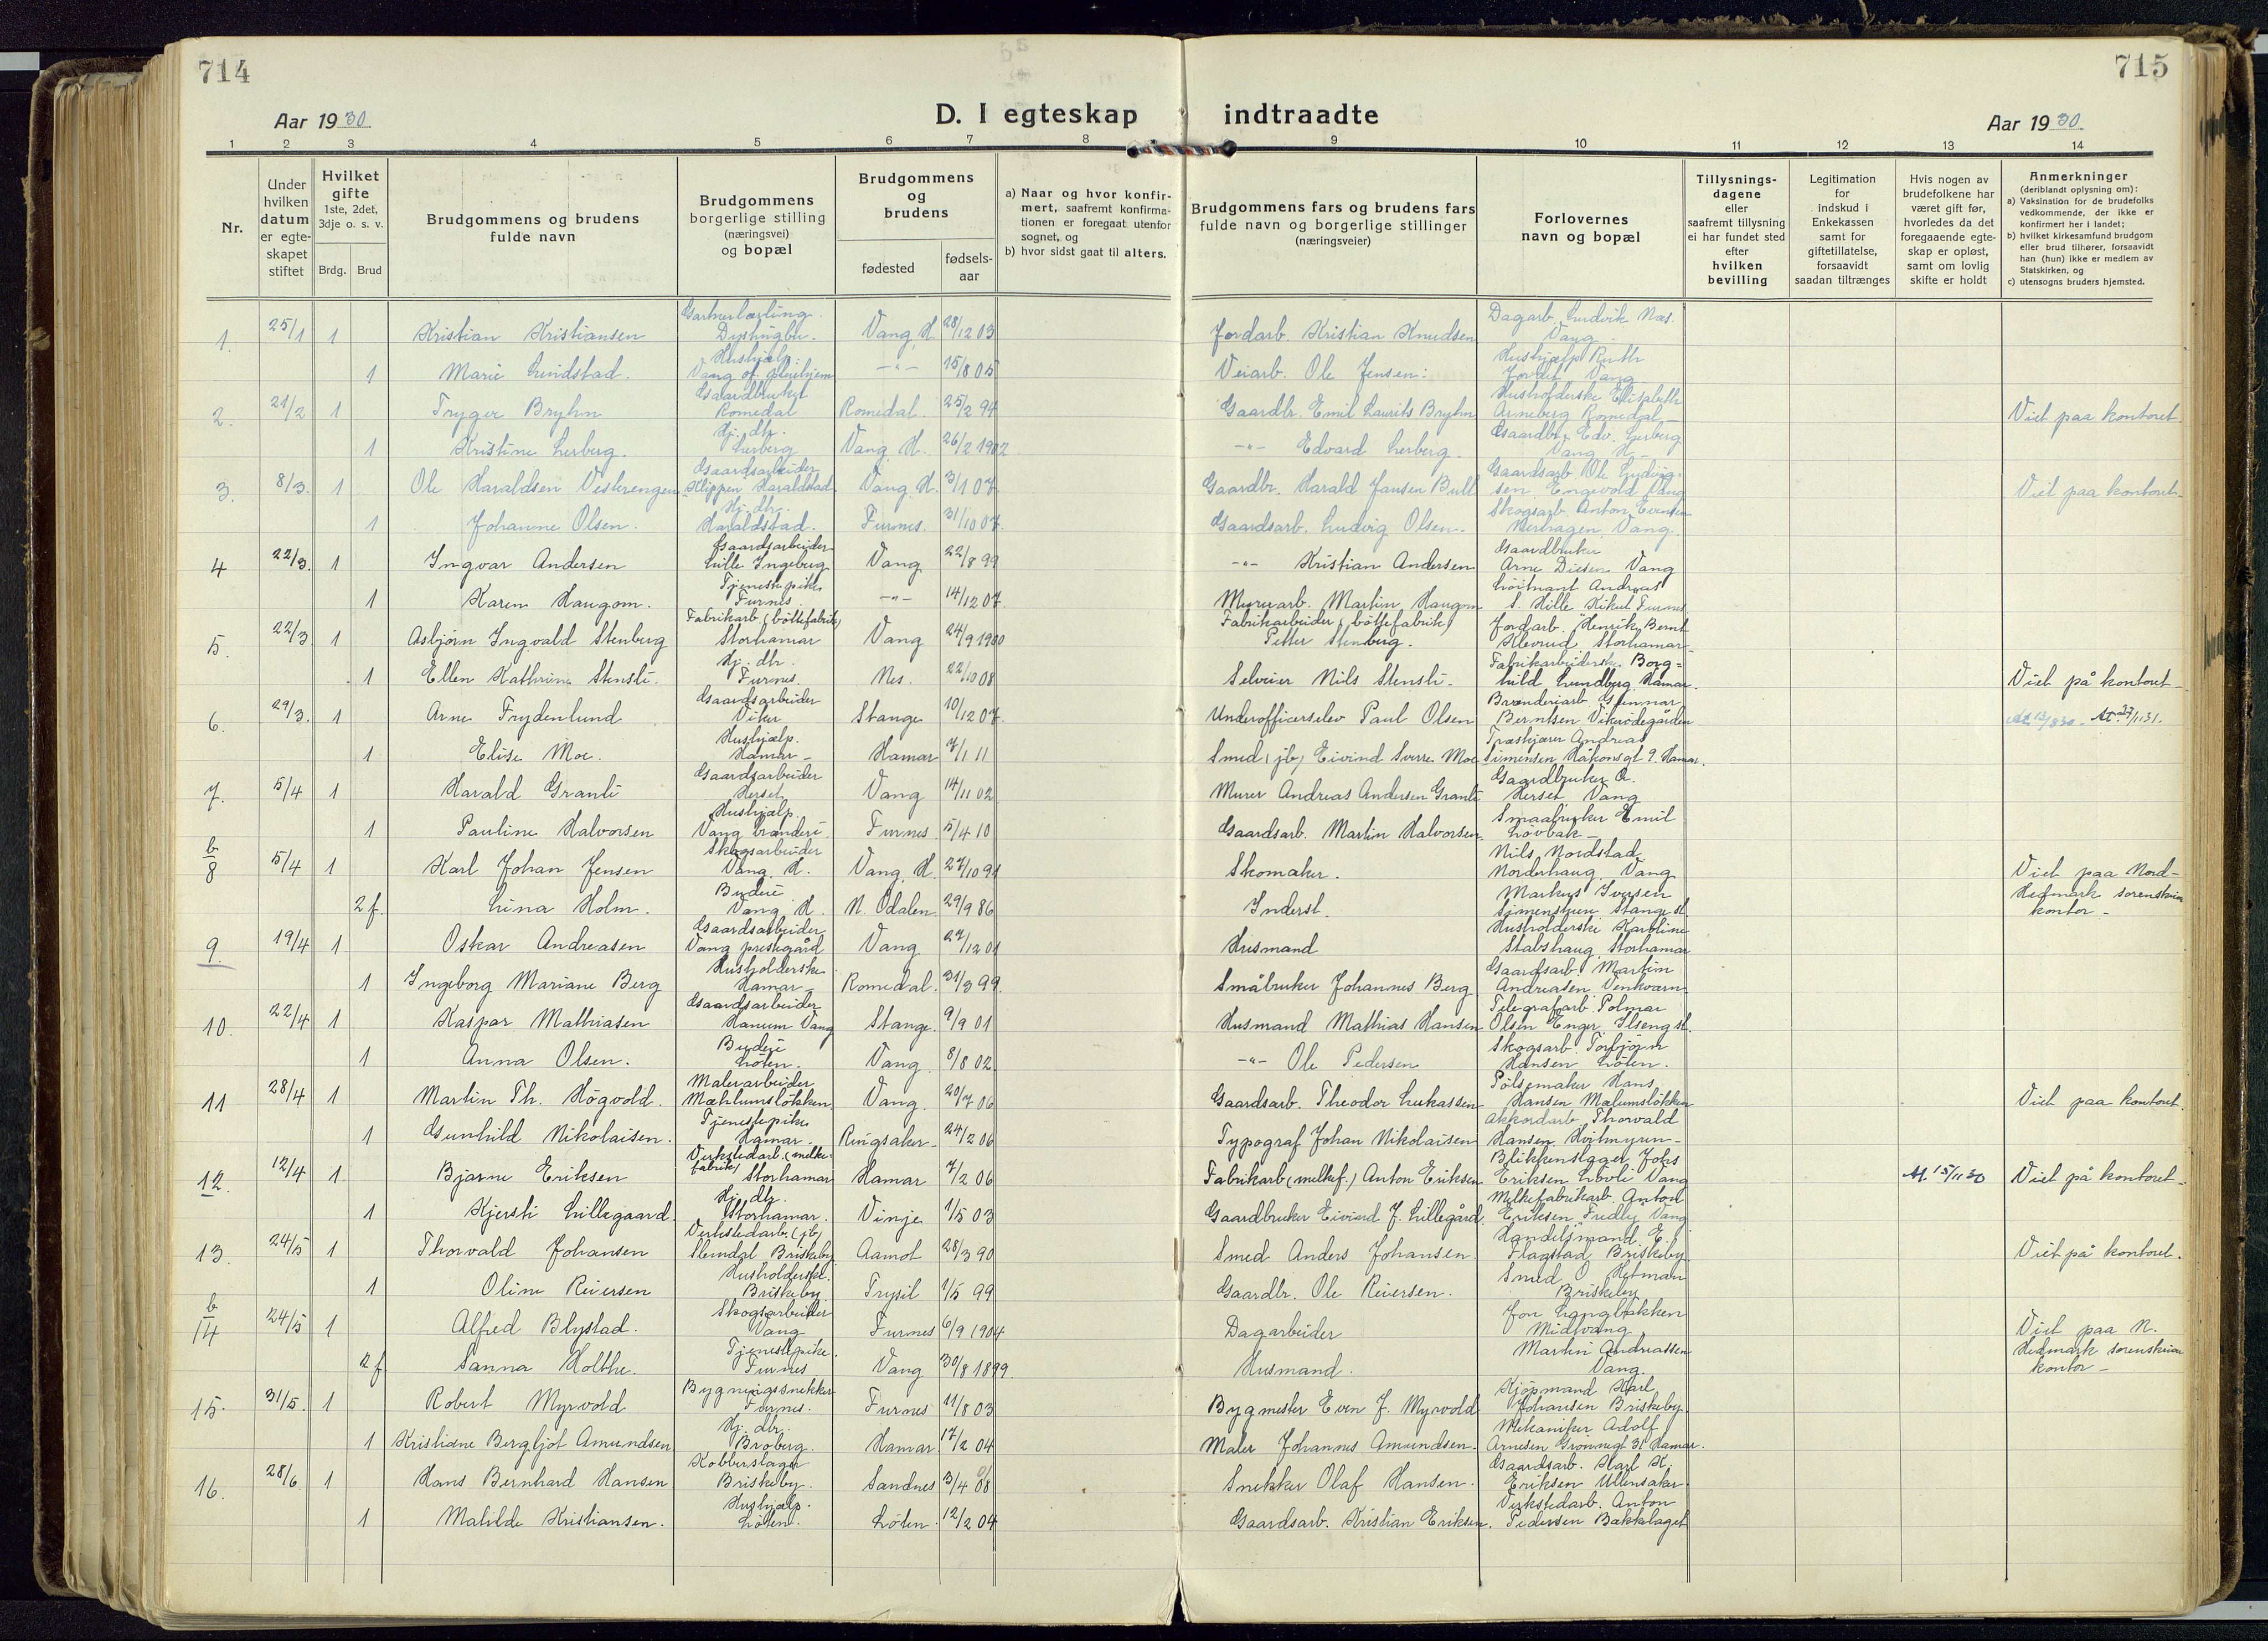 714
715
Aar 1930
D. I egteskap indtraadte
Aar 1930
1 2 3 4 5 6 7 8 9 10 11 12 13 14
Nr.
Under hvilken datum er egteskapet stiftet
Hvilket gifte 1ste, 2det, 3dje o. s. v.
Brdg. Brud
Brudgommens og brudens fulde navn
Brudgommens borgerlige stilling (næringsvei) og bopæl
Brudgommens og brudens
fødested
fødsels-aar
a) Naar og hvor konfirmert, saafremt konfirmationen er foregaat utenfor sognet, og
b) hvor sidst gaat til alters.
Brudgommens fars og brudens fars fulde navn og borgerlige stillinger (næringsveier)
Forlovernes navn og bopæl
Tillysningsdagene eller saafremt tillysning ei har fundet sted efter hvilken bevilling
Legitimation for indskud i Enkekassen samt for giftetillatelse, forsaavidt saadan tiltrænges
Hvis nogen av brudefolkene har været gift før, hvorledes da det foregaaende egteskap er opløst, samt om lovlig skifte er holdt
Anmerkninger (deriblandt oplysning om):
a) Vaksination for de brudefolks vedkommende, der ikke er konfirmert her i landet;
b) hvilket kirkesamfund brudgom eller brud tilhører, forsaavidt han (hun) ikke er medlem av Statskirken, og
c) utensogns bruders hjemsted.
1. 25/1 1 Kristian Kristiansen Gartnerlærling. Vang, H. 28/12 03 Jordarb. Kristian Knudsen Dagarb. Ludvik Næs. Vang.
1 Marie Lundstad. Hushjelp. Vang of. pleiehjem -"- 15/8 05 Veiarb. Ole Jensen. Hushjælp Ruth Vang
2. 21/2 1 Trygve Bryhn Gaardbruker Romedal Romedal. 25/2 94 Gaardbr. Emil Laurits Bryhn Husholderske Elisabeth Arneberg Romedal Viet paa kontoret
1 Kristine Lerberg. Hj. dtr. Lerberg Vang, H. 26/2 1902 -"- Edvard Lerberg. Gaardbr. Edv. Lerberg Vang H
3. 8/3. 1 Ole Haraldsen Vestrengen Gaardsarbeider Klippen Haraldstad Vang, H. 3/1 07 Gaardbr. Harald Jansen Bull Gaardsarb. Ole Ludvigsen Engevold Vang Viet paa kontoret
1 Johanne Olsen. Hj. dtr. Haraldstad. Furnes. 31/10 07 Gaardsarb. Ludvig Olsen. Skogsarb. Anton Evensen Vang.
4 22/3. 1 Ingvar Andersen Gaardsarbeider Lille Ingeberg Vang 22/8 99 -"- Kristian Andersen Gaardbruker Arne Diesen Vang
1 Karen Haugom. Tjenestepike Furnes -"- 14/12 07 Murerarb. Martin Haugom Löitnant Andreas S. Hille Kikut Furnes
5. 22/3. 1 Asbjörn Ingvald Stenberg Fabrikarb (böttefabrik) Storhamar Vang 24/9 1900 Fabrikarbeider (böttefabrik) Petter Stenberg. Jordarb. Henrik Bernt Storhamar
1 Ellen Kathrine Stensli. Hj. dtr. Furnes. Nes. 22/10 08 Selveier Nils Stensli Fabrikarbeiderske Borghild Lundberg. Hamar. Viet på kontoret
6. 29/3. 1 Arne Frydenlund Gaardsarbeider Viker Stange 10/12 07 Underofficerselev Paul Olsen Brænderiarb. Gunnar Berntsen Vikerödegården
1 Elise Moe. Hushjælp. Hamar Hamar 7/1 11 Smed (jb) Eivind Sverre Moe Træskjærer Andreas Simensen Håkonsgt 9. Hamar.
7. 5/4 1 Harald Granli Gaardsarbeider Herset Vang 14/11 02 Murer Andreas Andersen Granli Gaardbruker O. Herset Vang
1 Pauline Halvorsen Hushjælp Vang brænderi Furnes 5/4 10 Gaardsarb. Martin Halvorsen Smaabruker Emil Lövbak
b/8 5/4 1 Karl Johan Jensen Skogsarbeider Vang, H. Vang, H. 27/10 91 Skomaker. Nils Nordstad Norderhaug. Vang Viet paa Nord-Hedmark sorenskriverkontor
2 f. Lina Holm. Budeie Vang H. N. Odalen 29/9 86 Inderst. Markus Iversen Stange st.
9. 19/4 1 Oskar Andreasen Gaardsarbeider Vang prestegård Vang 27/12 01 Husmand Husholderske Karoline Stabshaug Storhamar
1 Ingeborg Mariane Berg Husholderske Hamar Romedal. 31/3 99. Småbruker Johannes Berg Gaardsarb. Martin Andreasen Venkvarn
10. 22/4 1 Kaspar Mathiasen Gaardsarbeider Hanum Vang Stange. 9/9 01 Husmand Mathias Hansen Telegrafarb. Polmar Olsen Enger Ilseng st.
1 Anna Olsen. Budeie Löten. Vang 8/8 02 -"- Ole Pedersen Skogsarb. Torbjörn Hansen Löten.
11 28/4 1 Martin Th. Högvold. Malerarbeider Mæhlumslökken Vang. 20/7 06 Gaardsarb. Theodor Lukassen Pölsemaker Hans Hansen Mælumslökken Viet paa kontoret
1 Gunhild Nikolaisen. Tjenestepike Hamar. Ringsaker 24/2 06 Typograf Johan Nikolaisen Akkordarb. Thorvald Hansen Hvitmyren
12. 12/4 1. Bjarne Eriksen Verkstedarb. (melkefabrik) Storhamar Hamar 7/2 06 Fabrikarb (melkef.) Anton Eriksen Blikkenslager Johs Eriksen Vang 15/11 30 Viet på kontoret
1 Kjersti Lillegaard. Hj. dtr. Storhamar. Vinje 1/5 03 Gaardbruker Eivind J. Lillegård. Melkefabrikarb. Anton Eriksen Fredly Vang
13. 24/5 1 Thorvald Johansen Verkstedarb. (jb) Slemdal Briskeby Aamot 28/3 90 Smed Anders Johansen Handelsmand E. Flagstad Briskeby Viet på kontoret.
1 Oline Reiersen Husholderske. Briskeby Trysil 1/5 99 Gaardbr. Ole Reiersen. Smed O Hetman Briskeby
b/14 24/5 1 Alfred Blystad. Skogsarbeider Vang Furnes 6/9 1904 Dagarbeider Jon Langbakken Midtvang Viet paa N. Hedmark sorenskriverkontor
2 f Sanna Holthe. Tjenestepike. Furnes Vang 30/8 1899. Husmand. Martin Andreassen Vang.
15. 31/5. 1 Robert Myrvold Bygningssnekker Furnes. Furnes 11/8 03 Bygmester Even J. Myrvold Kjöpmand Karl Johansen Briskeby
1 Kristiane Bergljot Amundsen Hj. dtr. Broberg. Hamar 17/2 04 Maler Johannes Amundsen. Mekaniker Adolf Arnesen Grönnegt 31 Hamar.
16. 28/6. 1 Hans Bernhard Hansen Kobberslager Briskeby. Sandnes 3/4 08 Snekker Olaf Hansen. Gaardsarb. Karl H. Eriksen Ullensaker
1 Matilde Kristiansen. Hushjælp. Löten. Löten. 12/2 04 Gaardsarb. Kristian Eriksen. Verkstedarb. Anton Pedersen Bækkelaget